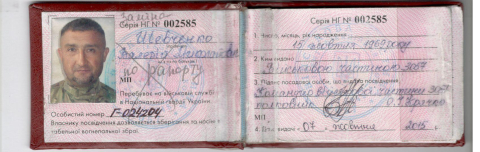 Заміна
Серія НГ № 002585
Шевченко
по рапорту
МП
Перебуває на військовій службі
в Національній гвардії України
Особистий номер Г-024204
Власнику посвідчення дозволяється зберігання та носіння
табельної вогнепальної зброї.
Серія НГ № 002585
1. Число, місяць, рік народження
15 жовтня 1969 року
2. Ким видано
Військовою частиною 3057
3. Підпис посадової особи, що видала посвідчення
Командир військової частини 3057
полковник
МП
4. Дата видачі « 07 » жовтня 2015 р.